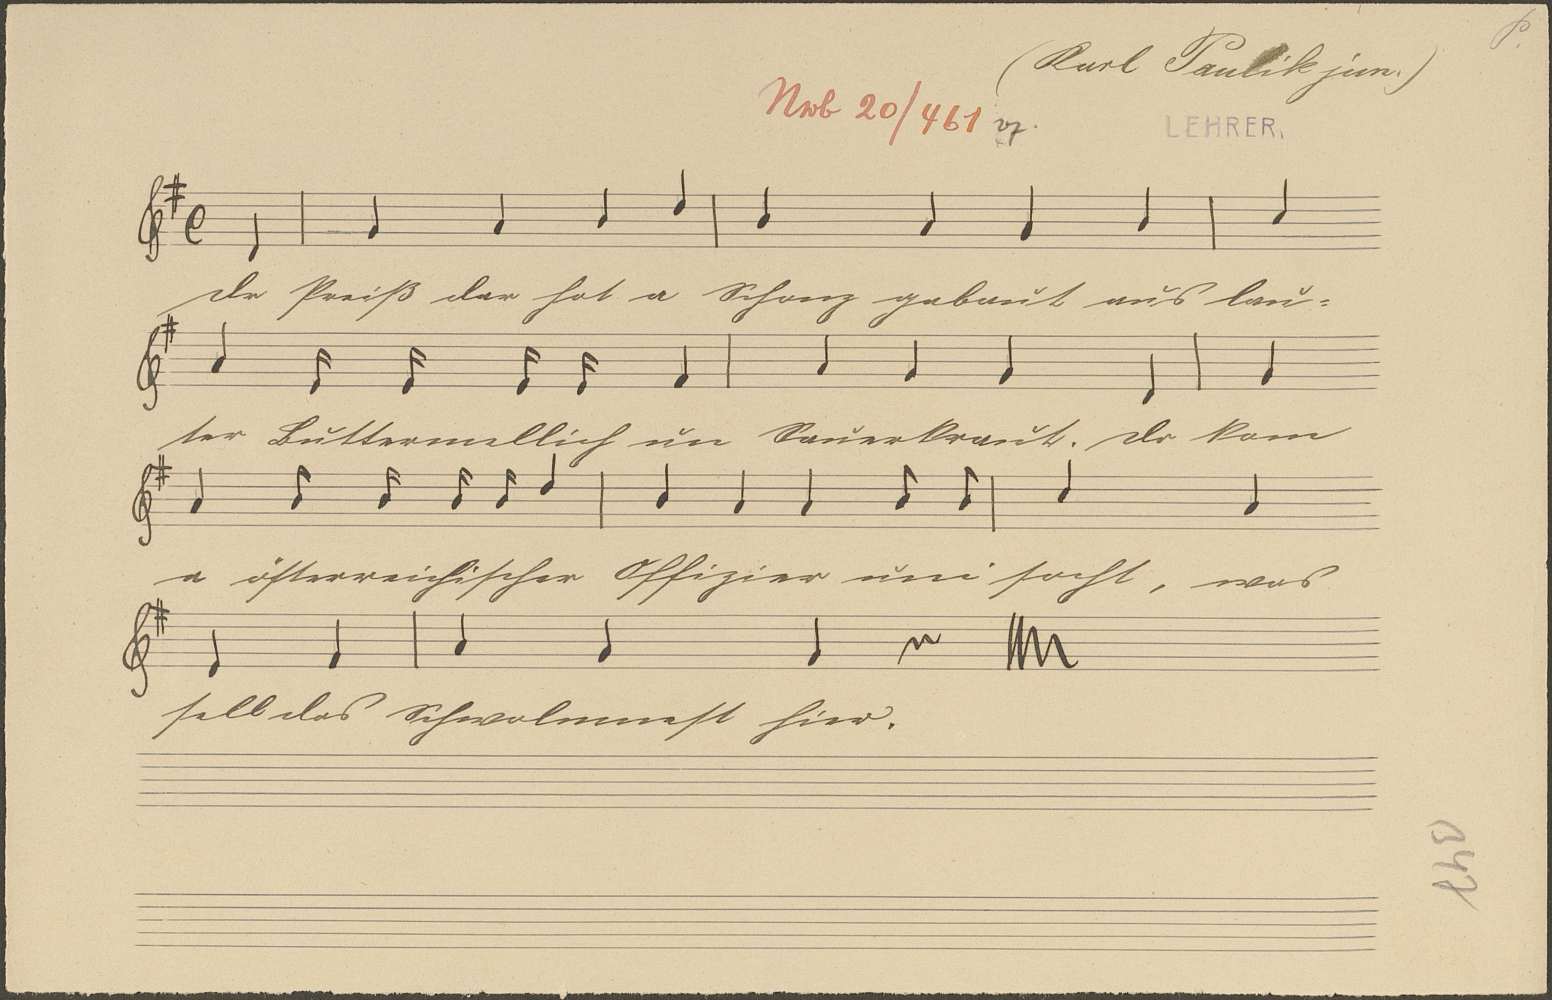 (Karl Paulik jun.)
Nrb 20/461
LEHRER.
De Preiß dar hot a Schanz gebaut aus lau=
ter Buttermellich un Sauerkraut. Do kam
a österreichischer Offizier uni socht, was
sell das Schwalmnest hier.